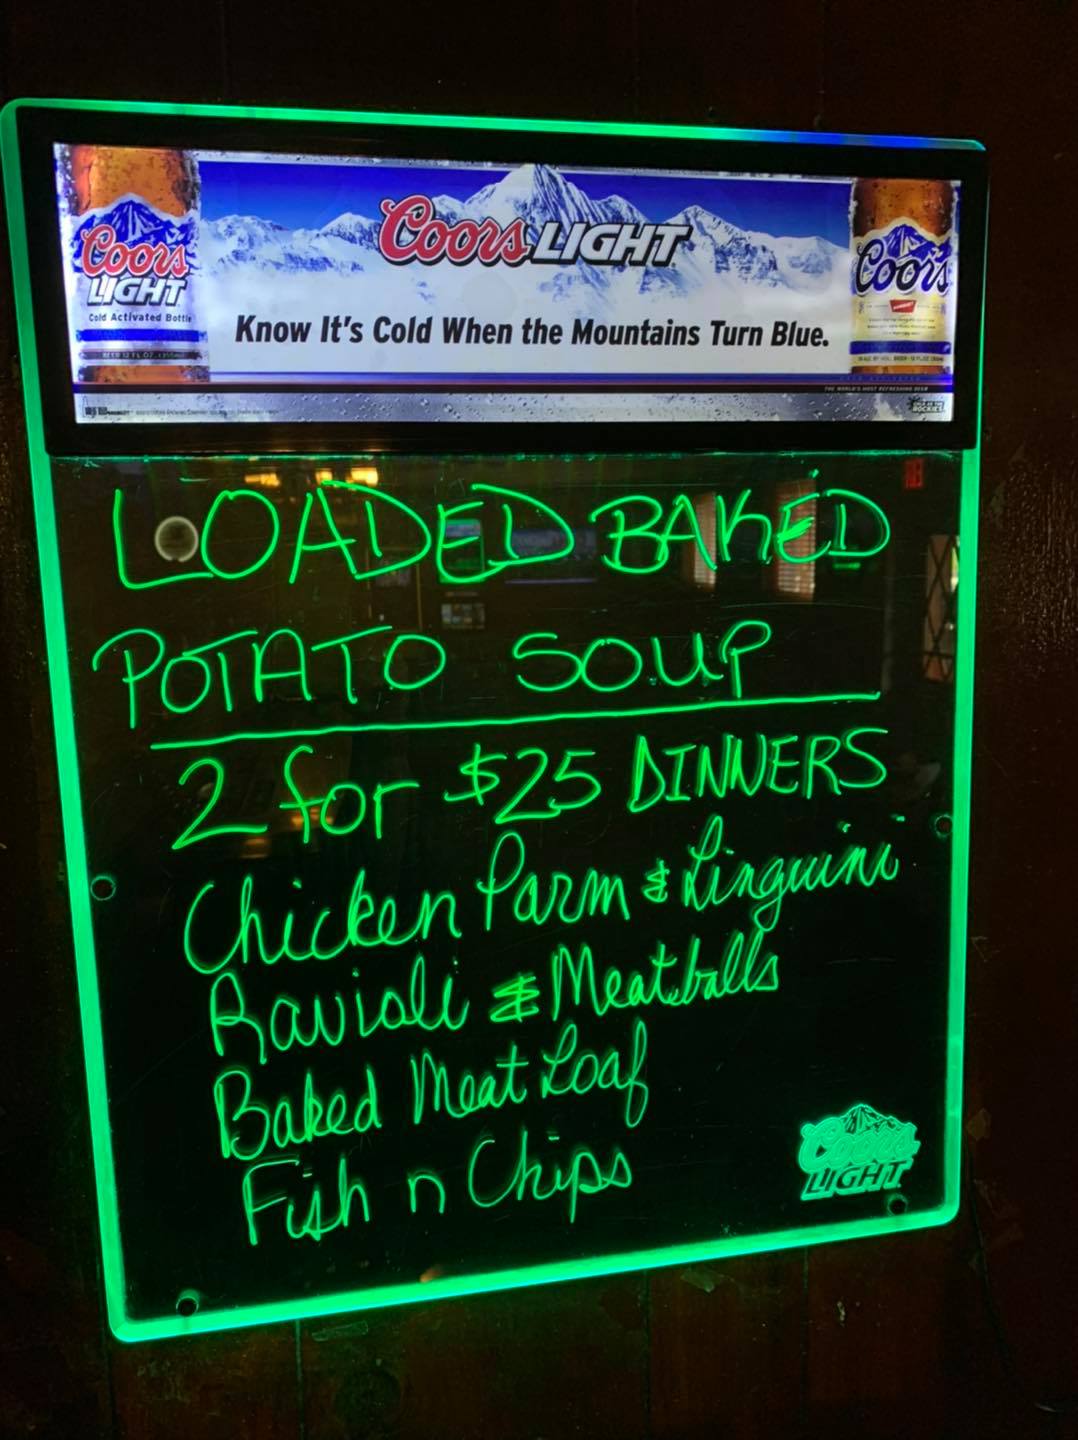 Coors LIGHT
Know It's Cold When the Mountains Turn Blue.
Coors
LIGHT
Cold Activated Bottle
Coors
THE WORLD'S MOST REFRESHING BEER
LOADED BAKED
POTATO SOUP
2 for $25 DINNERS
Chicken Parm & Linguini
Ravioli & Meatballs
Baked Meat Loaf
Fish n Chips
Coors
LIGHT